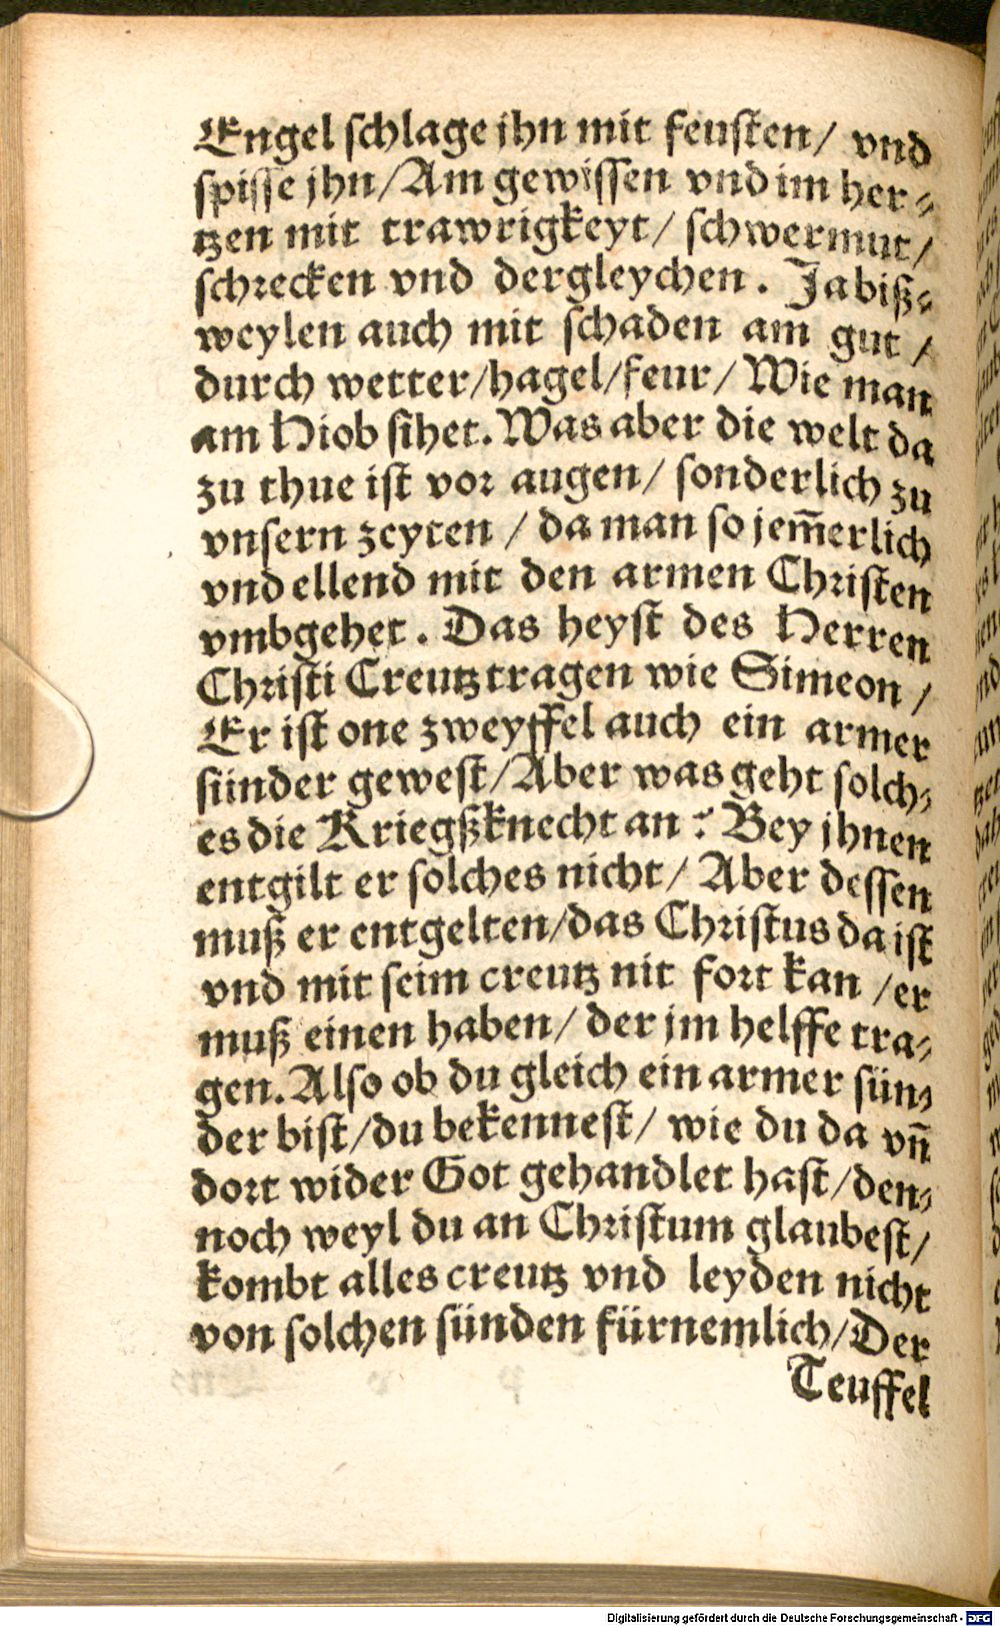 Engel ſchlage jhn mit feuſten/ vnd
ſpiſſe jhn/Am gewiſſen vnd im her⸗
tzen mit trawrigkeyt/ ſchwermut/
ſchrecken vnd dergleychen. Ja biß⸗
weylen auch mit ſchaden am gut /
durch wetter/hagel/feur/ Wie man
am Hiob ſihet. Was aber die welt da
zu thue iſt vor augen/ ſonderlich zu
vnſern zeyten / da man ſo jem̄erlich
vnd ellend mit den armen Chriſten
vmbgehet. Das heyſt des Herren
Chriſti Creutz tragen wie Simeon /
Er iſt one zweyffel auch ein armer
ſünder geweſt/Aber was geht ſolch⸗
es die Kriegßknecht an? Bey jhnen
entgilt er ſolches nicht/ Aber deſſen
muß er entgelten/das Chriſtus da iſt
vnd mit ſeim creutz nit fort kan /er
muß einen haben/ der jm helffe tra⸗
gen. Alſo ob du gleich ein armer ſün⸗
der biſt/du bekenneſt/ wie du da vn̄
dort wider Got gehandlet haſt/den⸗
noch weyl du an Chriſtum glaubeſt/
kombt alles creutz vnd leyden nicht
von ſolchen ſünden fürnemlich/Der
Teuffel
Digitalisierung gefördert durch die Deutsche Forschungsgemeinschaft - DFG